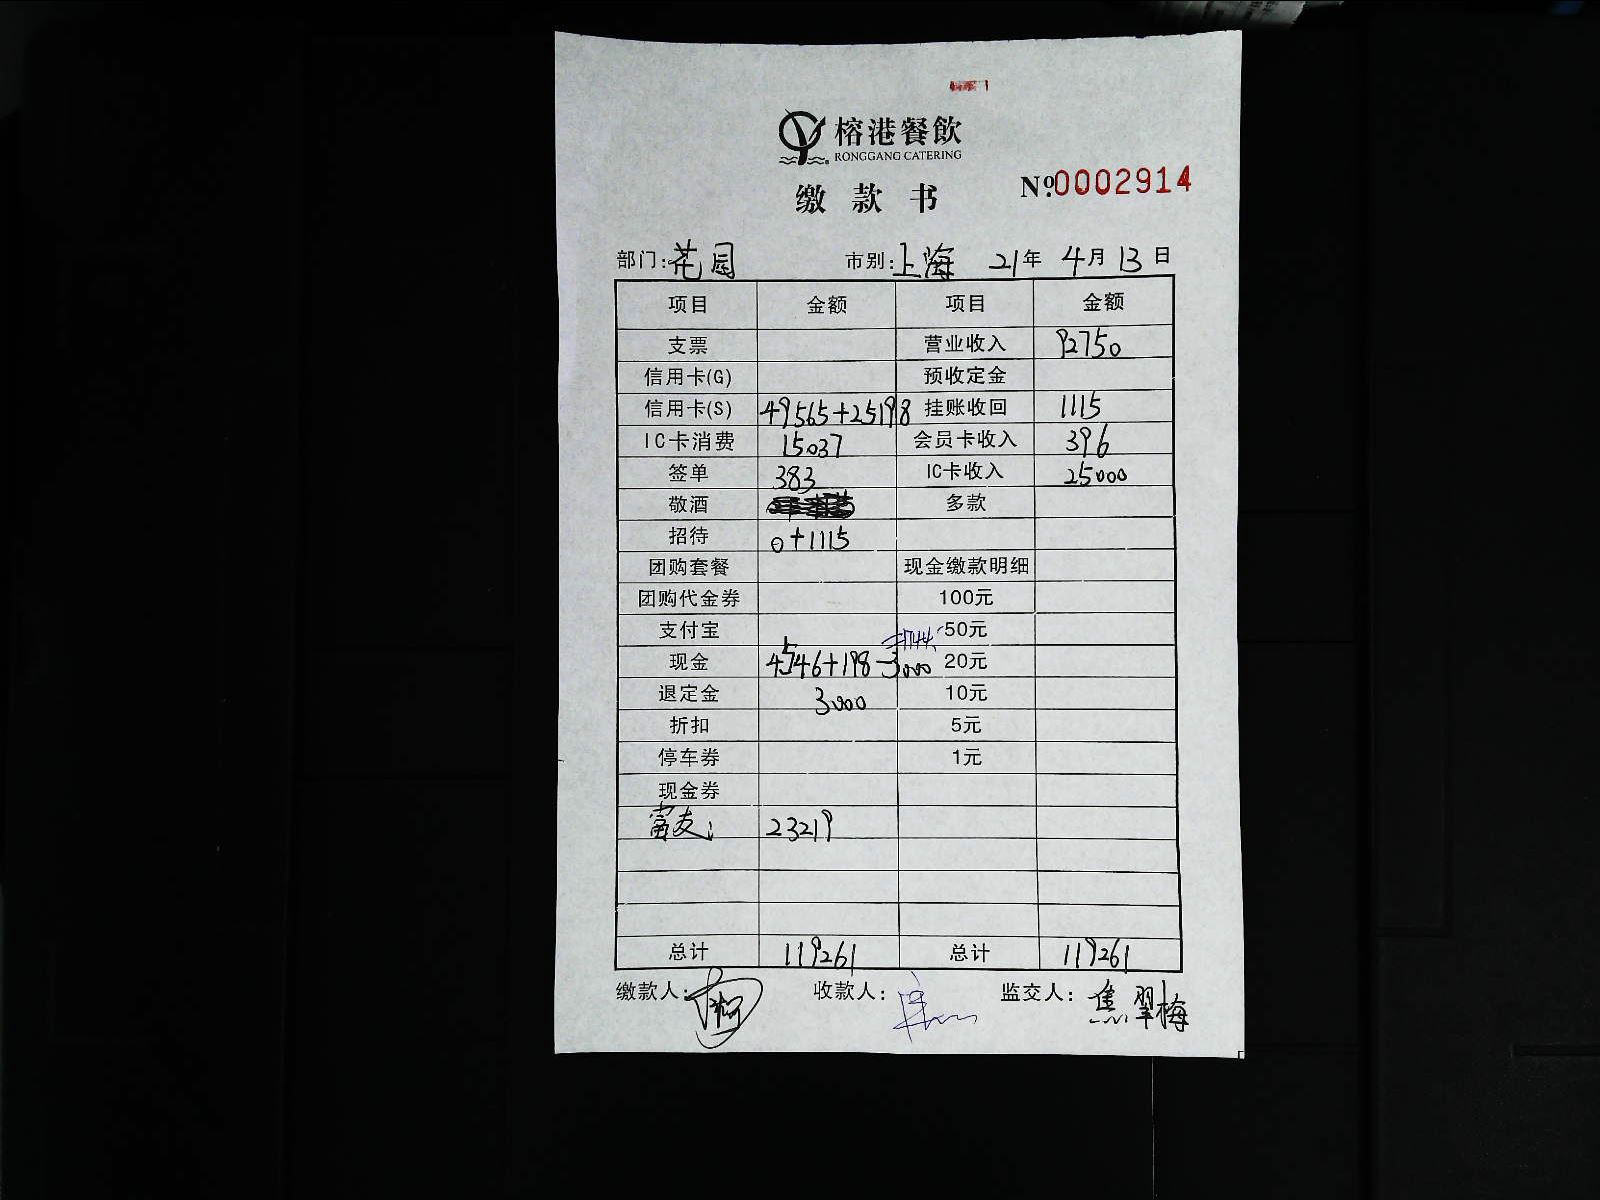 榕港餐飲
RONGGANG CATERING
缴款书 №0002914
部门:花园 市别:上海 21年 4月 13日
项目 金额 项目 金额
支票 营业收入 92750
信用卡(G) 预收定金
信用卡(S) 49565+25198 挂账收回 1115
IC卡消费 15037 会员卡收入 396
签单 383 IC卡收入 25000
敬酒 多款
招待 0+1115
团购套餐 现金缴款明细
团购代金券 100元
支付宝 =1744 50元
现金 4546+198-3000 20元
退定金 3000 10元
折扣 5元
停车券 1元
现金券
富友: 23219
总计 119261 总计 119261
缴款人: 收款人: 监交人: 焦翠梅